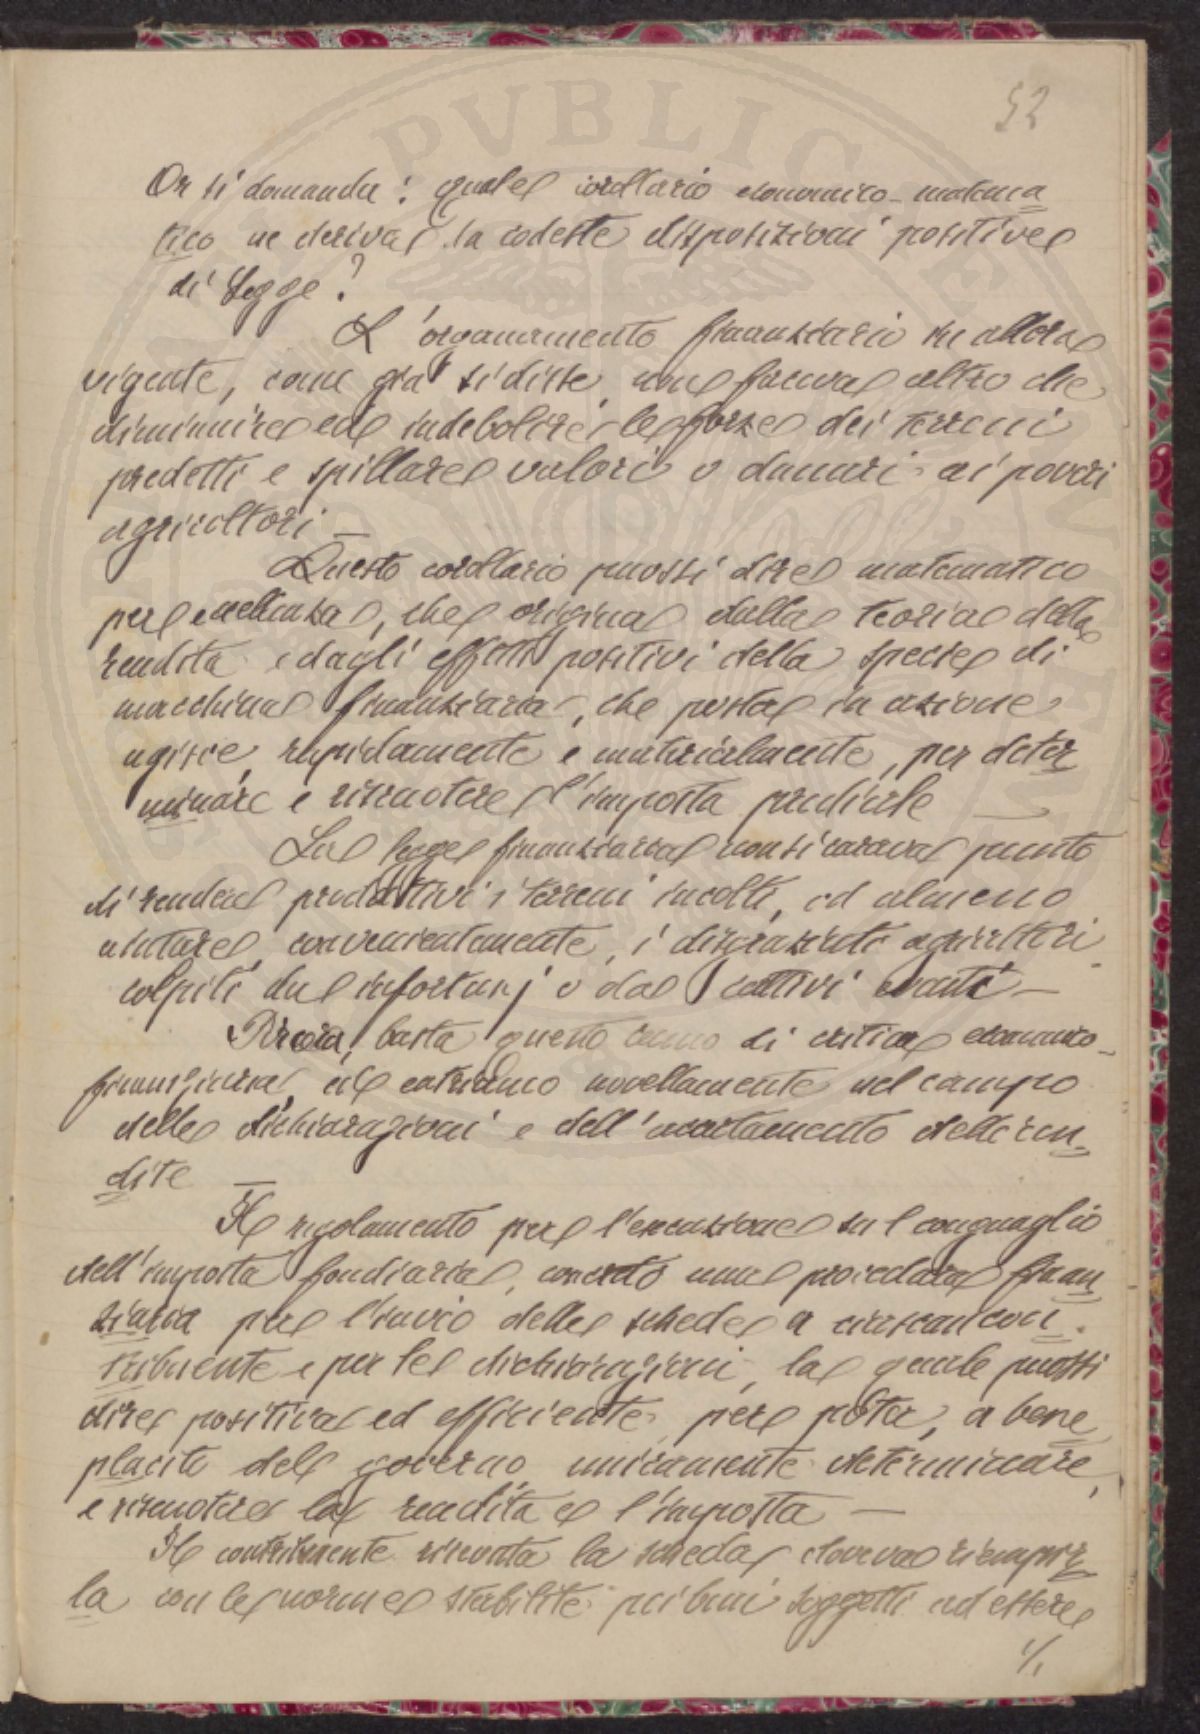 52
Or si domanda: quale corollario economico-matema
tico ne deriva da codeste disposizioni positive
di Legge?
L'organamento finanziario in allora
vigente, come già si disse, non faceva altro che
diminuire ed indebolire le forze dei terreni
predetti e spillare valori o danari ai poveri
agricoltori —
Questo corollario puossi dire matematico
per eccellenza, che origina dalla teoria della
rendita e dagli effetti positivi della specie di
macchina finanziaria, che posta in azione
agisce rapidamente e materialmente, per deter
minare e riscuotere l'imposta prediale —
La legge finanziaria non si curava punto
di rendere produttivi i terreni incolti, od almeno
aiutare, convenientemente, i disgraziati agricoltori
colpiti da infortunj o da cattivi eventi —
basta questo cenno di critica economico-
finanziaria, ed entriamo novellamente nel campo
delle dichiarazioni e dell'accertamento delle ren
dite —
Il regolamento per l'esecuzione sul conguaglio
dell'imposta fondiaria, una procedura finan
ziaria per l'invio delle schede a ciascun con
tribuente e per le dichiarazioni, la quale puossi
dire positiva ed efficiente, per poter, a bene
placito del governo, unicamente determinare,
e riscuotere la rendita e l'imposta —
Il contribuente ricevuta la scheda doveva riempir
la con le norme stabilite pei beni soggetti ad essere
1/1
PVBLICAE